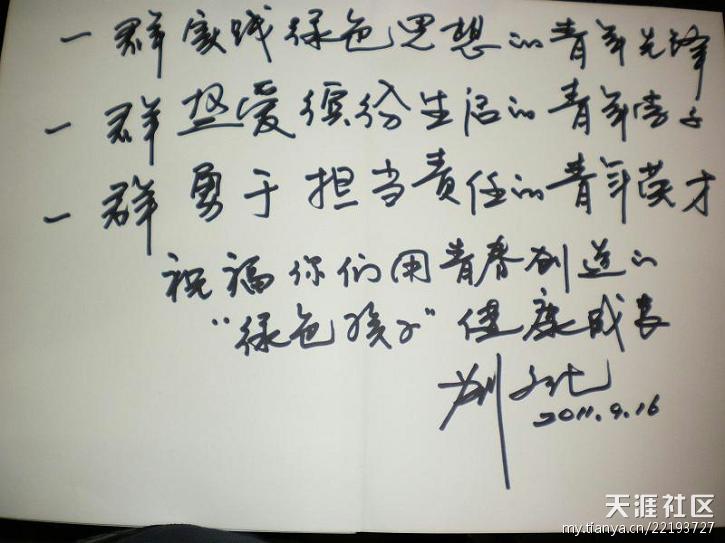 一群实践绿色思想的青年先锋
一群热爱缤纷生活的青年学子
一群勇于担当责任的青年英才
祝福你们用青春创造的
“绿色孩子”健康成长
2011.9.16
天涯社区
my.tianya.cn/22193727